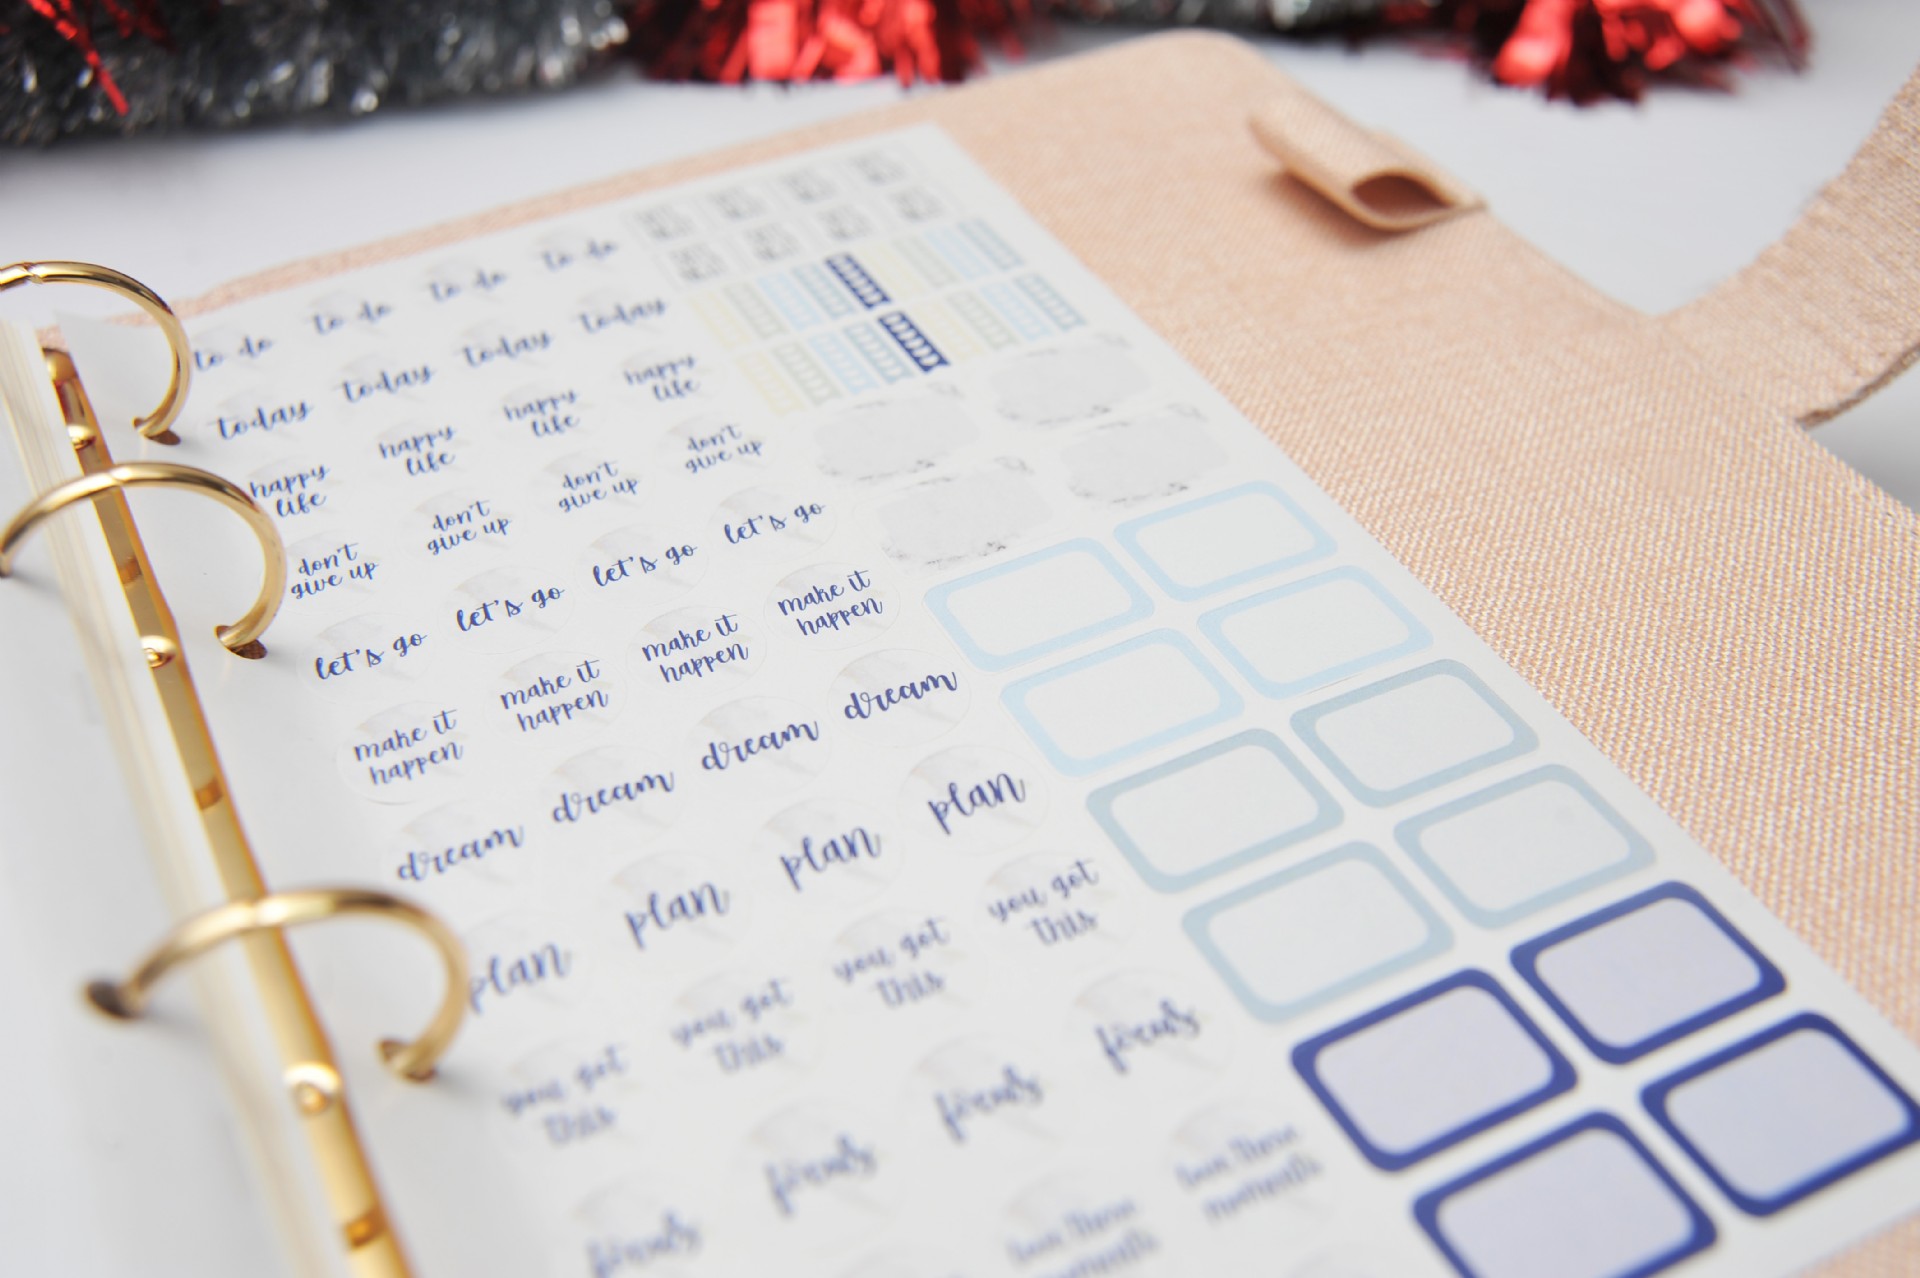 to do to do to do to do
today today today today
happy happy happy happy
life life life life
don't don't don't don't
give up give up give up give up
let's go let's go let's go let's go
make it make it make it make it
happen happen happen happen
dream dream dream dream
plan plan plan plan
you got you got you got you got
this this this this
focus focus focus focus
love these love these
moments moments